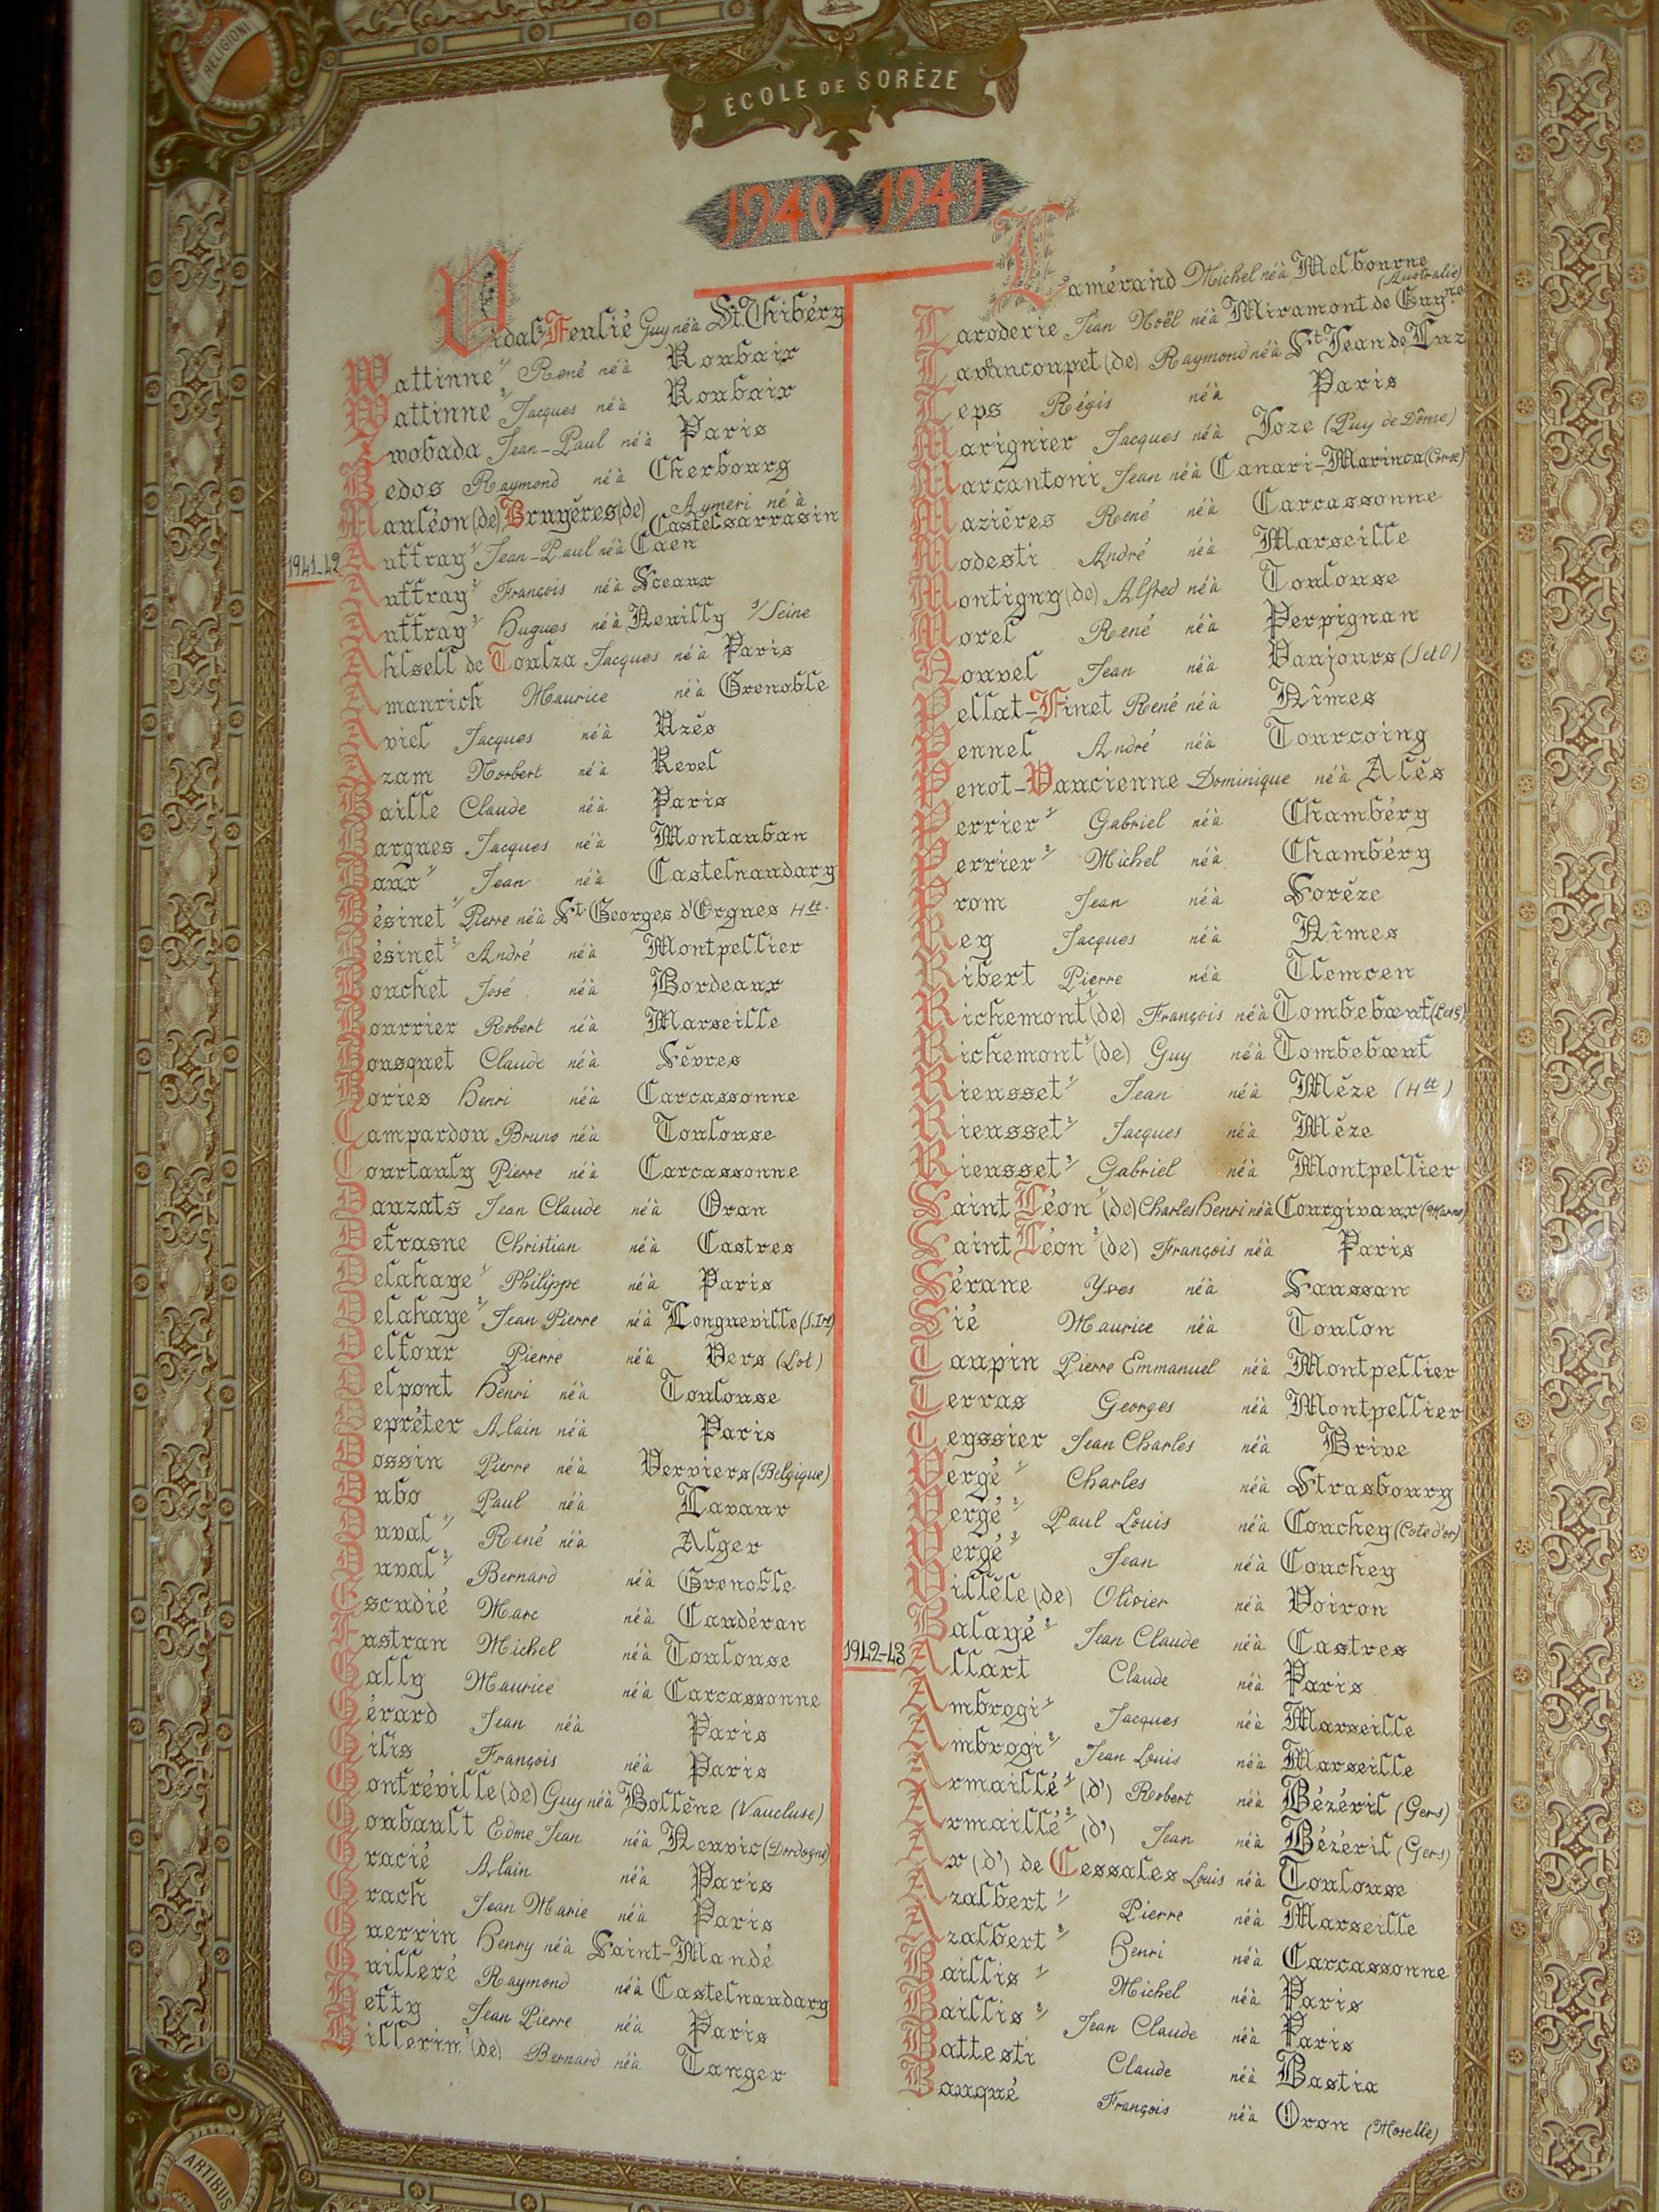 RELIGIONI
ÉCOLE DE SORÈZE
1940_1941
Vidal Feulié Guy né à St. Thibéry
Wattinne 1/ René né à Roubaix
Wattinne 2/ Jacques né à Roubaix
Zwobada Jean-Paul né à Paris
Bedos Raymond né à Cherbourg
Mauléon (de) Bruyères (de) Aymeri né à
Castelsarrasin
1941-42
Auffray 1/ Jean-Paul né à Caen
Auffray 2 François né à Sceaux
Auffray 3 Hugues né à Neuilly s/Seine
Ahlsell de Toulza Jacques né à Paris
Amanrich Maurice né à Grenoble
Aviel Jacques né à Uzès
Azam Norbert né à Revel
Baille Claude né à Paris
Bargues Jacques né à Montauban
Baux 1/ Jean né à Castelnaudary
Bésinet 1/ Pierre né à St. Georges d'Orques Hlt.
Bésinet 2 André né à Montpellier
Bouchet José né à Bordeaux
Bourrier Robert né à Marseille
Bousquet Claude né à Sèvres
Bories Henri né à Carcassonne
Campardou Bruno né à Toulouse
Courtauly Pierre né à Carcassonne
Dauzats Jean Claude né à Oran
Defrasne Christian né à Castres
Delahaye 1/ Philippe né à Paris
Delahaye 2/ Jean Pierre né à Longueville (S.Inf)
Deltour Pierre né à Vers (Lot)
Delpont Henri né à Toulouse
Depréter Alain né à Paris
Dossin Pierre né à Verviers (Belgique)
Dubo Paul né à Lavaur
Duval 1/ René né à Alger
Duval 2/ Bernard né à Grenoble
Escudié Marc né à Caudéran
Fustran Michel né à Toulouse
Gally Maurice né à Carcassonne
Gérard Jean né à Paris
Gilis François né à Paris
Gonfréville (de) Guy né à Bollène (Vaucluse)
Goubault Edme Jean né à Neuvic (Dordogne)
Gracié Alain né à Paris
Grach Jean Marie né à Paris
Guerrin Henry né à Saint-Mandé
Guilleré Raymond né à Castelnaudary
Hefty Jean Pierre né à Paris
Hillerin 1 (de) Bernard né à Tanger
Lamérand Michel né à Melbourne
(Australie)
Laroderie Jean Noël né à Miramont de Guyne
Lavancoupet (de) Raymond né à St Jean de Luz
Leps Régis né à Paris
Marignier Jacques né à Joze (Puy de Dôme)
Marcantoni Jean né à Canari-Marinca (Corse)
Mazières René né à Carcassonne
Modesti André né à Marseille
Montigny (de) Alfred né à Toulouse
Morel René né à Perpignan
Nouvel Jean né à Vaujours (S et O)
Pellat-Finet René né à Nîmes
Pennel André né à Tourcoing
Penot-Vaucienne Dominique né à Alès
Perrier 1/ Gabriel né à Chambéry
Perrier 2 Michel né à Chambéry
Prom Jean né à Sorèze
Rey Jacques né à Nîmes
Ribert Pierre né à Tlemcen
Richemont 1 (de) François né à Tombebœuf (LetG)
Richemont 2 (de) Guy né à Tombebœuf
Rieusset 1/ Jean né à Mèze (Hlt)
Rieusset 2 Jacques né à Mèze
Rieusset 3 Gabriel né à Montpellier
Saint Léon 1 (de) Charles Henri né à Courgivaux (Marne)
Saint Léon 2 (de) François né à Paris
Sérane Yves né à Saussan
Sié Maurice né à Toulon
Taupin Pierre Emmanuel né à Montpellier
Terras Georges né à Montpellier
Teyssier Jean Charles né à Brive
Vergé 1 Charles né à Strasbourg
Vergé 2/ Paul Louis né à Couchey (Cote d'or)
Vergé 3 Jean né à Couchey
Villèle (de) Olivier né à Voiron
Balayé 2 Jean Claude né à Castres
1942-43
Allart Claude né à Paris
Ambrogi 1 Jacques né à Marseille
Ambrogi 2/ Jean Louis né à Marseille
Armaillé 1 (d') Robert né à Bézéril (Gers)
Armaillé 2 (d') Jean né à Bézéril (Gers)
Ax (d') de Cessales Louis né à Toulouse
Azalbert 1/ Pierre né à Marseille
Azalbert 2 Henri né à Carcassonne
Baillis 1 Michel né à Paris
Baillis 2/ Jean Claude né à Paris
Battesti Claude né à Bastia
Bauqué François né à Oron (Moselle)
ARTIBUS